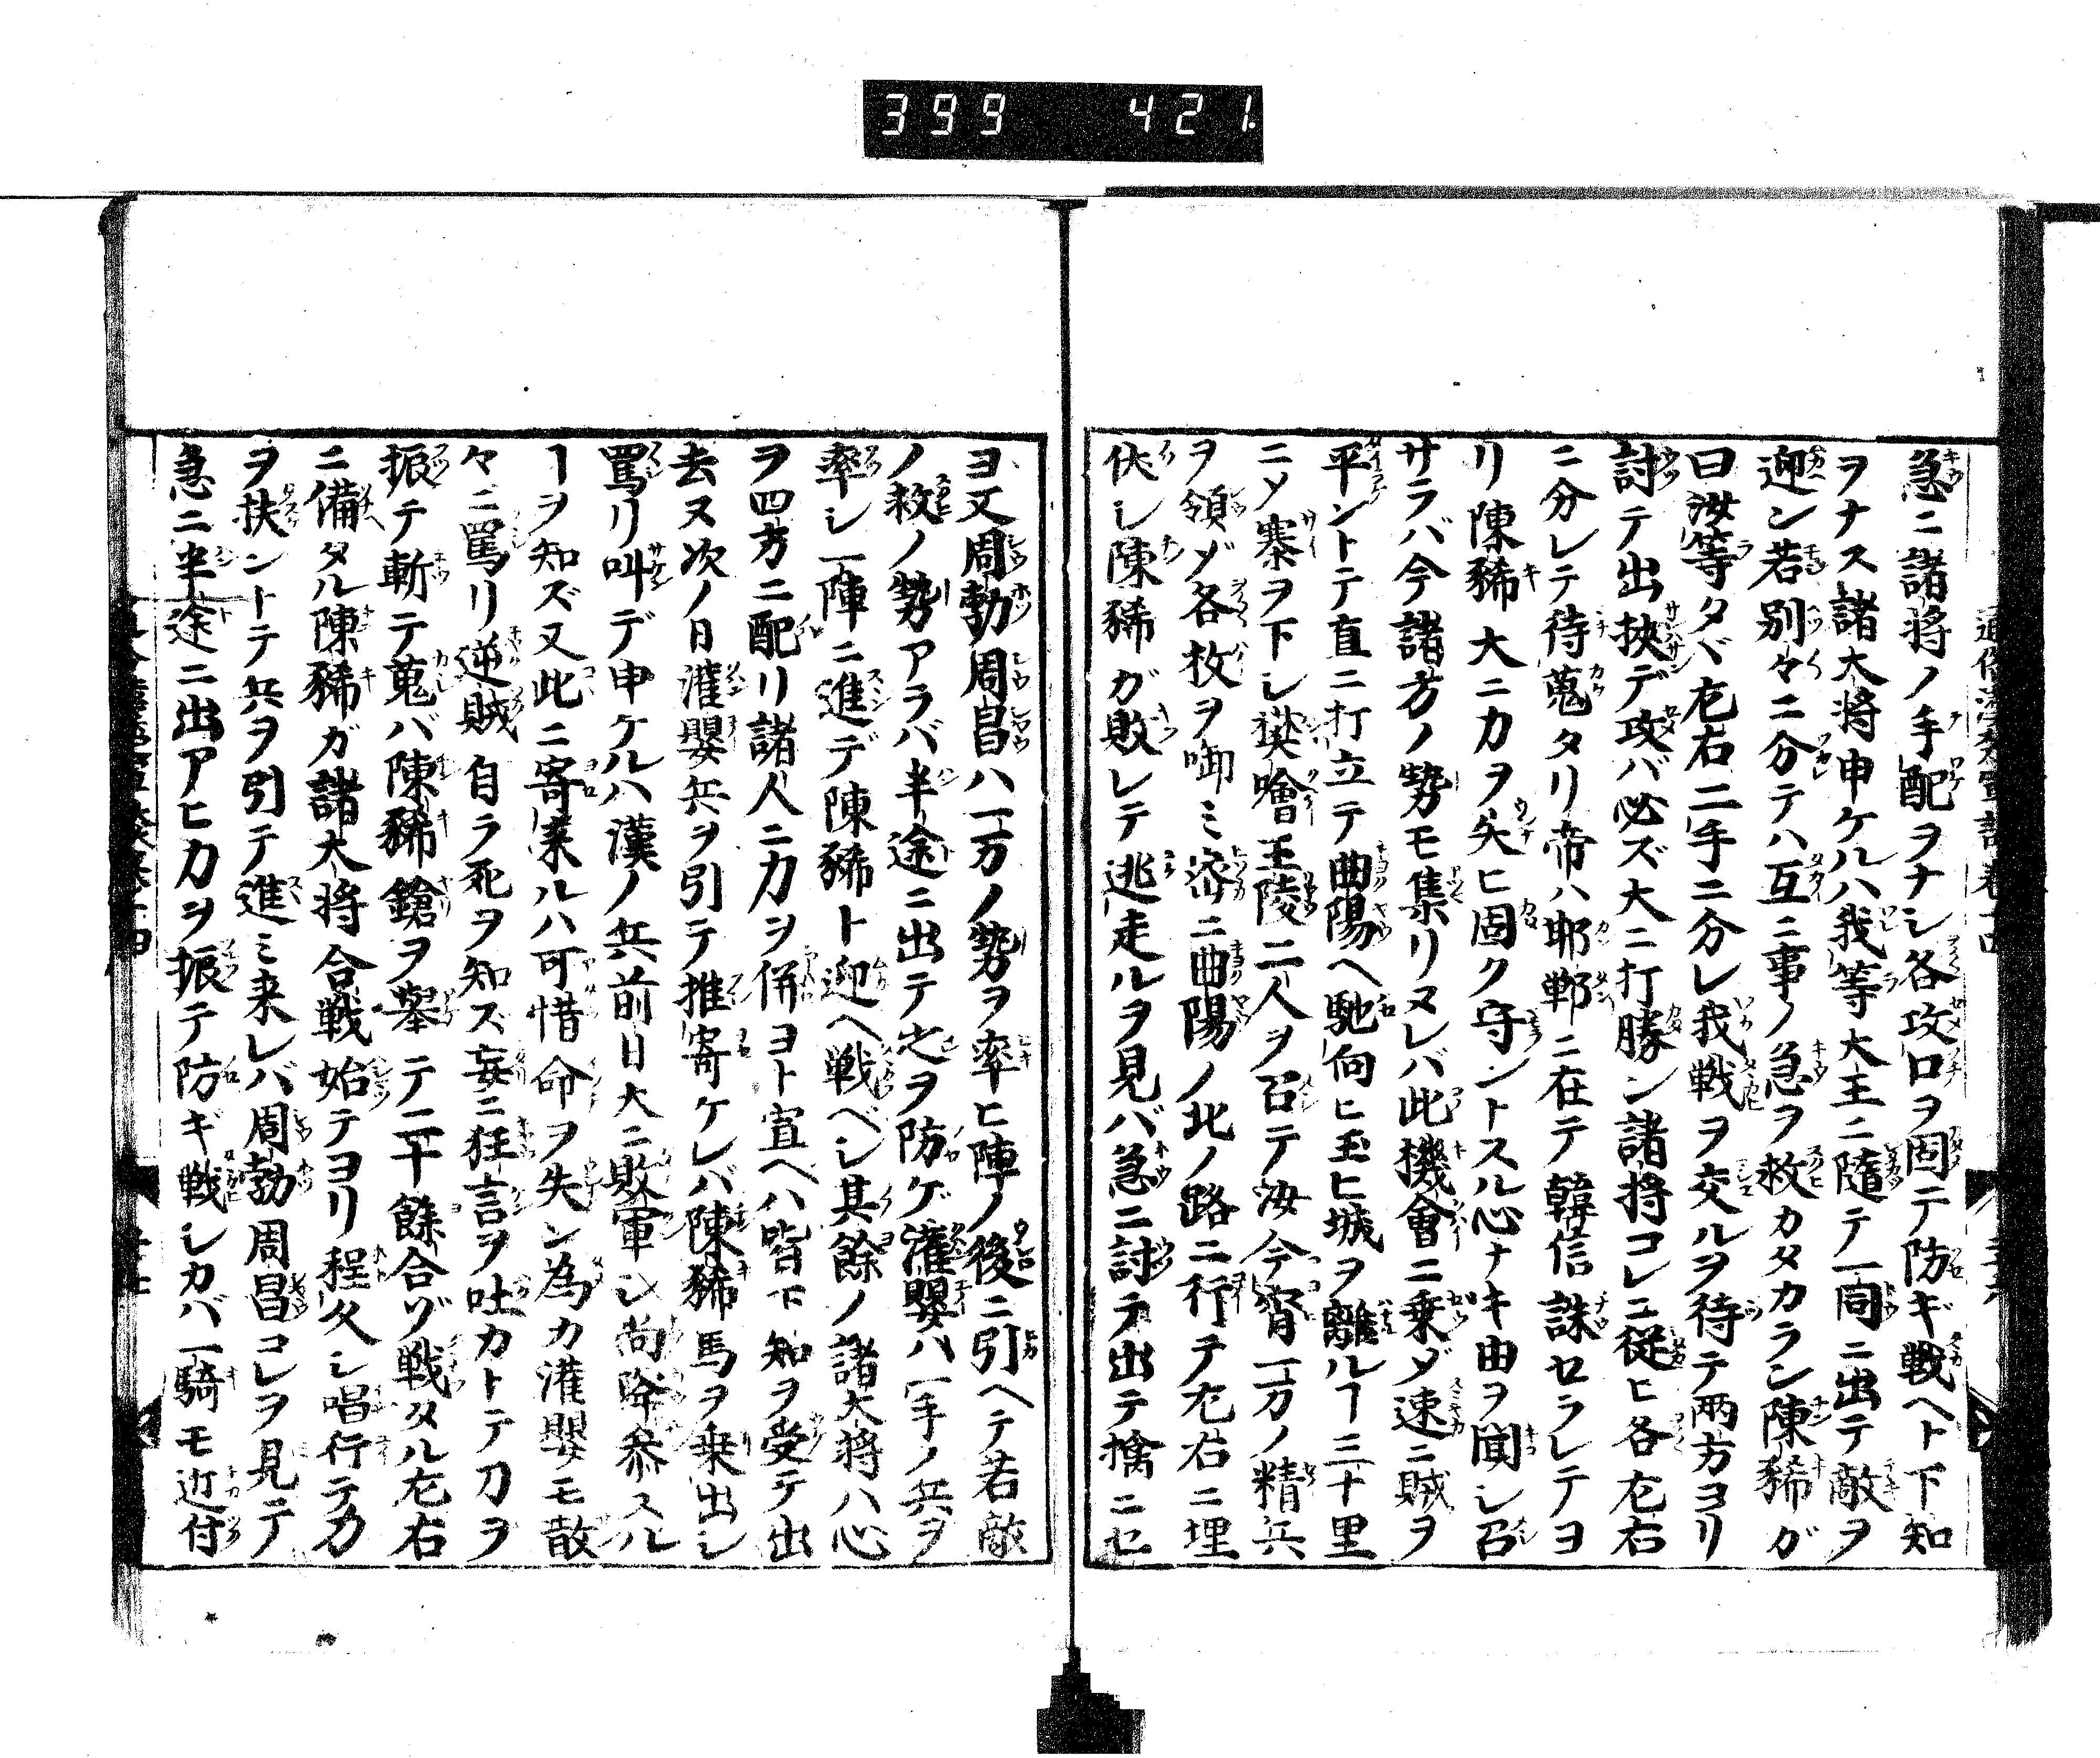 399 421.
急ニ諸將ノ手配ヲナシ各攻口ヲ固テ防ギ戦ヘト下知
ヲナス諸大將申ケルハ我等大王ニ隨テ一同ニ出テ敵ヲ
迎ン若別々ニ分テハ互ニ事ノ急ヲ救カタカラン陳豨ガ
曰汝等タバ左右二手ニ分レ我戦ヲ交ルヲ待テ兩方ヨリ
討テ出挾デ攻バ必ズ大ニ打勝ン諸將コレニ從ヒ各左右
ニ分レテ待蒐タリ帝ハ邯鄲ニ在テ韓信誅セラレテヨ
リ陳豨大ニカヲ失ヒ固ク守ントスル心ナキ由ヲ聞シ召
サラバ今諸方ノ勢モ集リヌレバ此機會ニ乗ダ速ニ賊ヲ
平ントテ直ニ打立テ曲陽ヘ馳向ヒ玉ヒ城ヲ離ルヿ三十里
ニメ寨ヲ下シ樊噲王陵二人ヲ召テ汝今宵一万ノ精兵
ヲ領ゾ各枚ヲ啣ミ密ニ曲陽ノ北ノ路ニ行テ左右ニ埋
伏シ陳豨ガ敗レテ逃走ルヲ見バ急ニ討テ出テ擒ニセ
ヨ又周勃周昌ハ一万ノ勢ヲ率ヒ陣ノ後ニ引ヘテ若敵
ノ救ノ勢アラバ半途ニ出テ之ヲ防ゲ灌嬰ハ一手ノ兵ヲ
率シ一陣ニ進デ陳豨ト迎ヘ戦ベシ其餘ノ諸大將ハ心
ヲ四方ニ配リ諸人ニ力ヲ併ヨト宣ヘハ皆下知ヲ受テ出
去ヌ次ノ日灌嬰兵ヲ引テ推寄ケレバ陳豨馬ヲ乗出シ
罵リ叫デ申ケルハ漢ノ兵前日大ニ敗軍シ尚降参スル
ヿヲ知ズ又此ニ寄来ルハ可惜命ヲ失ン為カ灌嬰モ散
々ニ罵リ逆賊自ラ死ヲ知ス妄ニ狂言ヲ吐カトテ刀ヲ
振テ斬テ蒐バ陳豨鎗ヲ擧テ二十餘合ゾ戦タル左右
ニ備タル陳豨ガ諸大將合戦始テヨリ程久シ唱行テ力
ヲ扶ントテ兵ヲ引テ進ミ来レバ周勃周昌コレヲ見テ
急ニ半途ニ出アヒ力ヲ振テ防ギ戦シカバ一騎モ近付